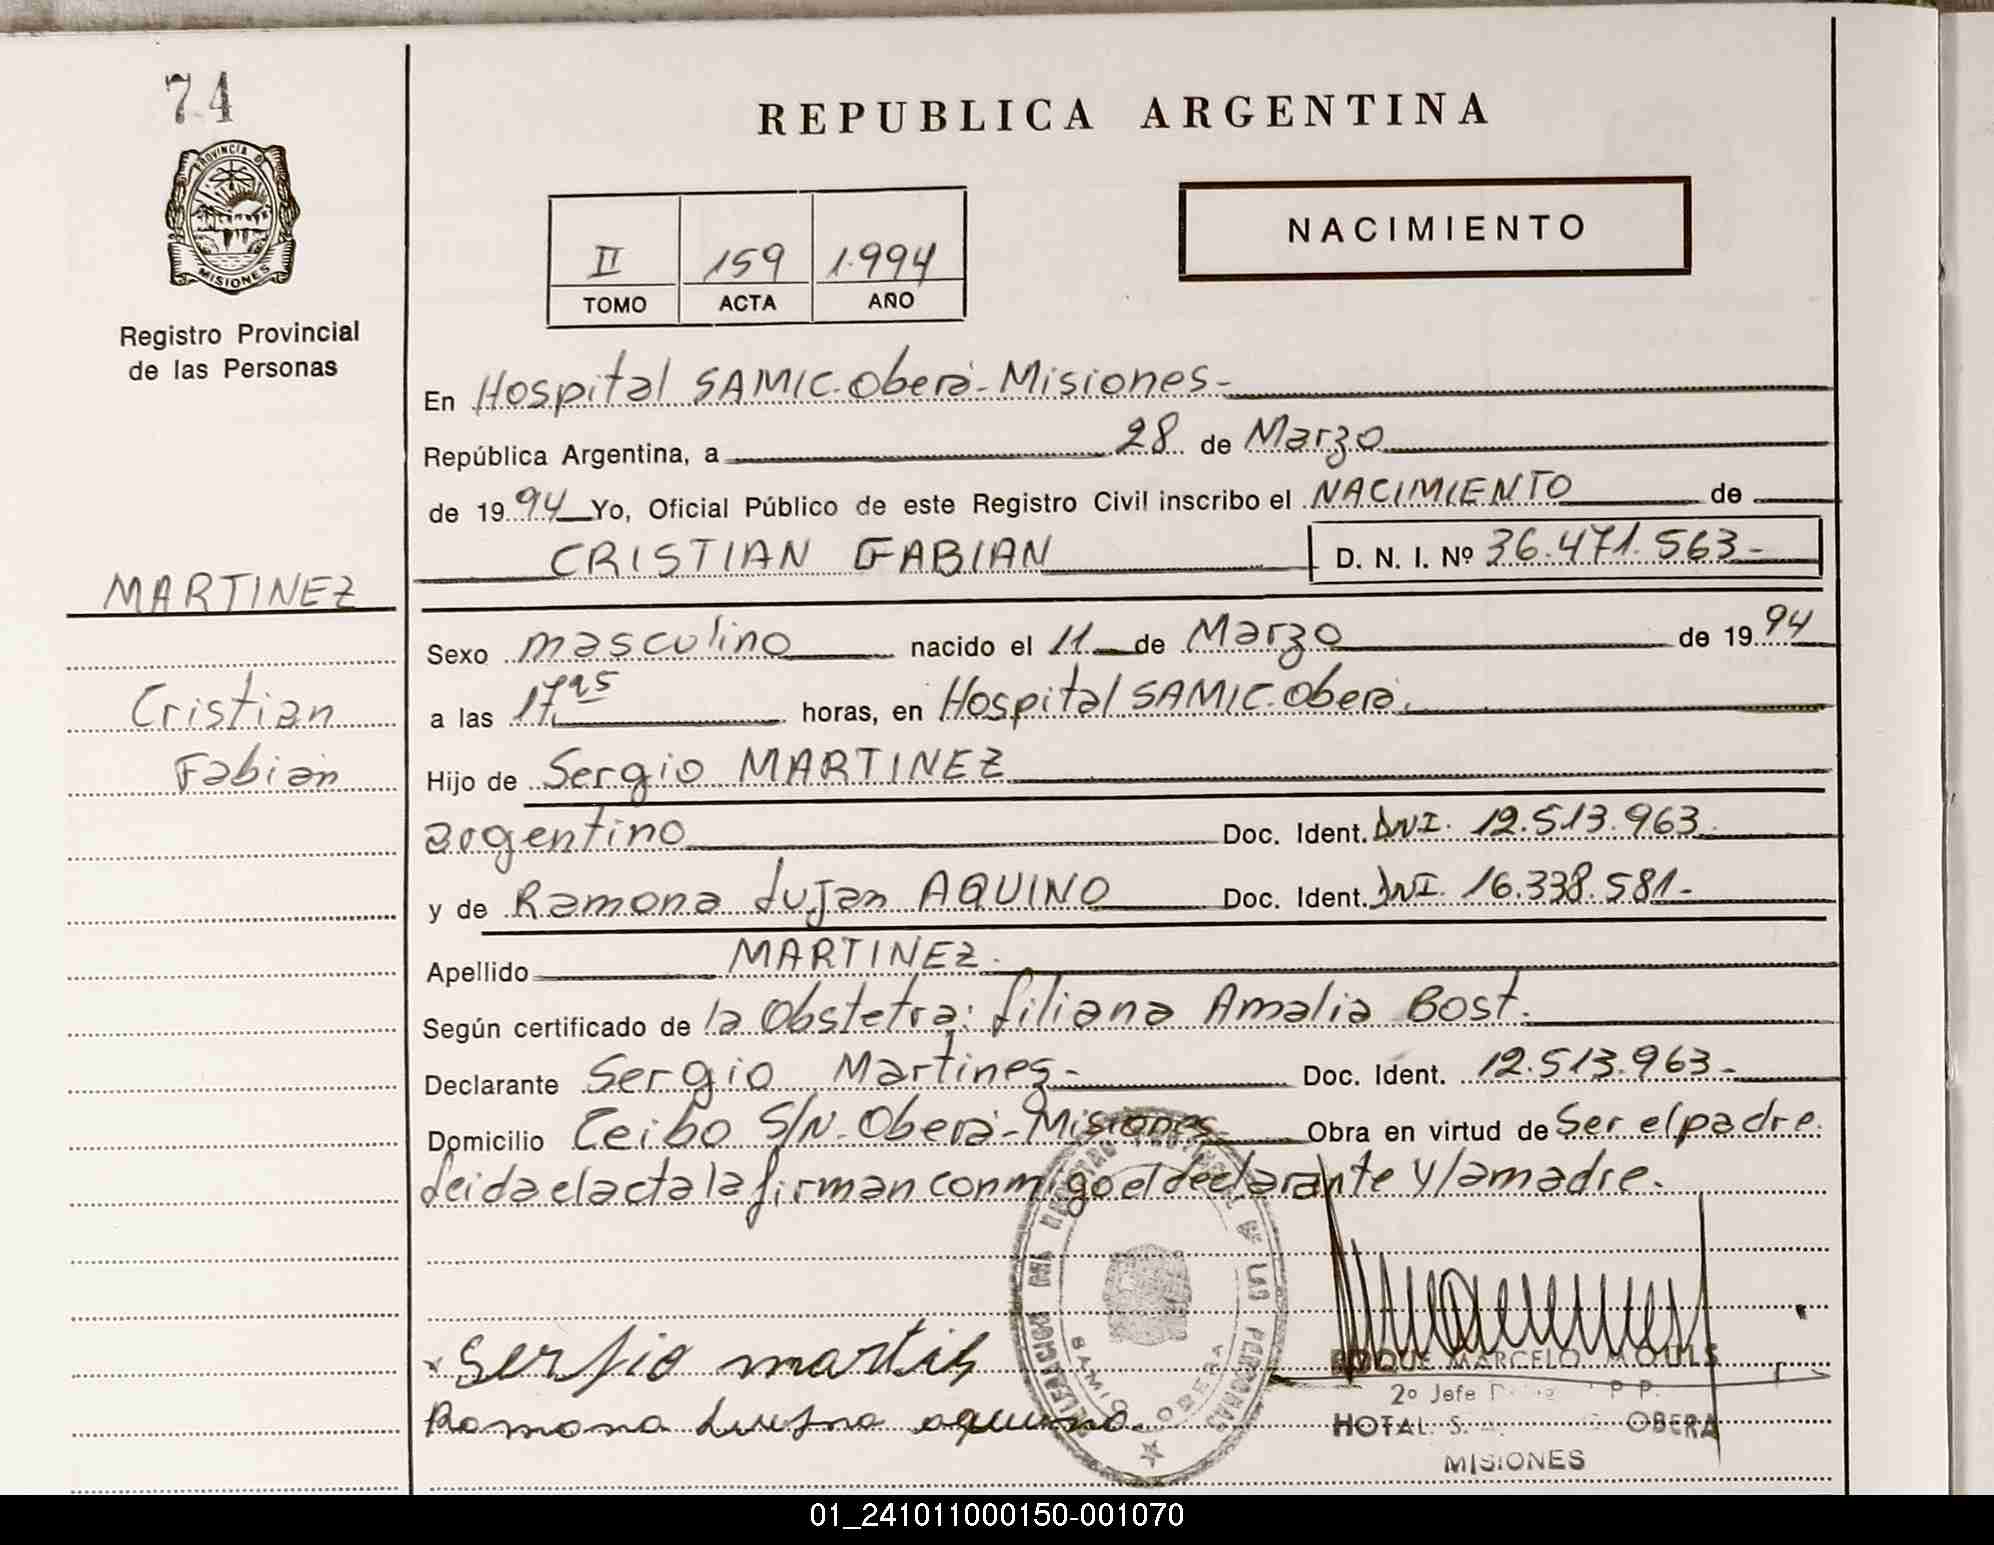 74
PROVINCIA D
MISIONES
Registro Provincial
de las Personas
MARTINEZ
Cristian
Fabián
REPUBLICA ARGENTINA
II 159 1.994
TOMO ACTA AÑO
NACIMIENTO
En Hospital SAMIC-Oberá-Misiones-
República Argentina, a 28 de Marzo
de 1994 Yo, Oficial Público de este Registro Civil inscribo el NACIMIENTO de
CRISTIAN FABIAN D. N. I. Nº 36.471.563-
Sexo masculino nacido el 11 de Marzo de 1994
a las 17 horas, en Hospital SAMIC-Oberá.
Hijo de Sergio MARTINEZ
argentino Doc. Ident. DNI. 12.513.963
y de Ramona Lujan AQUINO Doc. Ident. DNI. 16.338.581-
Apellido MARTINEZ.
Según certificado de la Obstetra: Liliana Amalia Bost.
Declarante Sergio Martines- Doc. Ident. 12.513.963-
Domicilio Ceibo S/N-Oberá-Misiones- Obra en virtud de Ser el padre.
Leida el acta la firman conmigo el declarante y la madre.
DELEGACION DEL REGISTRO PROVINCIAL DE LAS PERSONAS
SAMIC OBERA
Sergio
Ramona aquino
ROQUE MARCELO MOULS
2º Jefe P.P.
HOTAL. S. OBERA
MISIONES
01_241011000150-001070